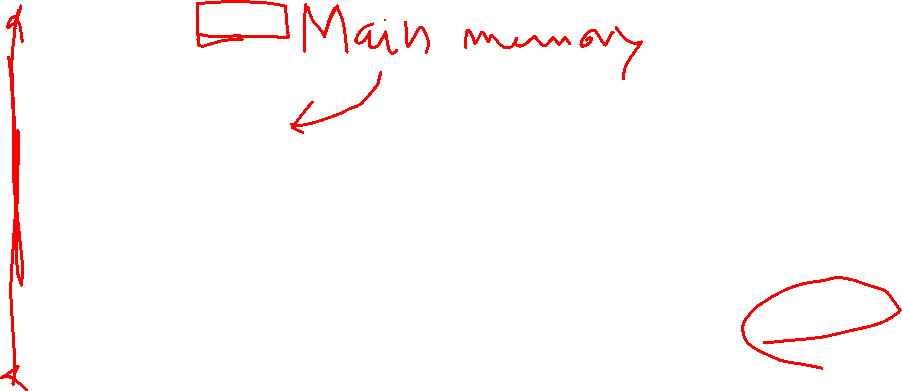 Main memory